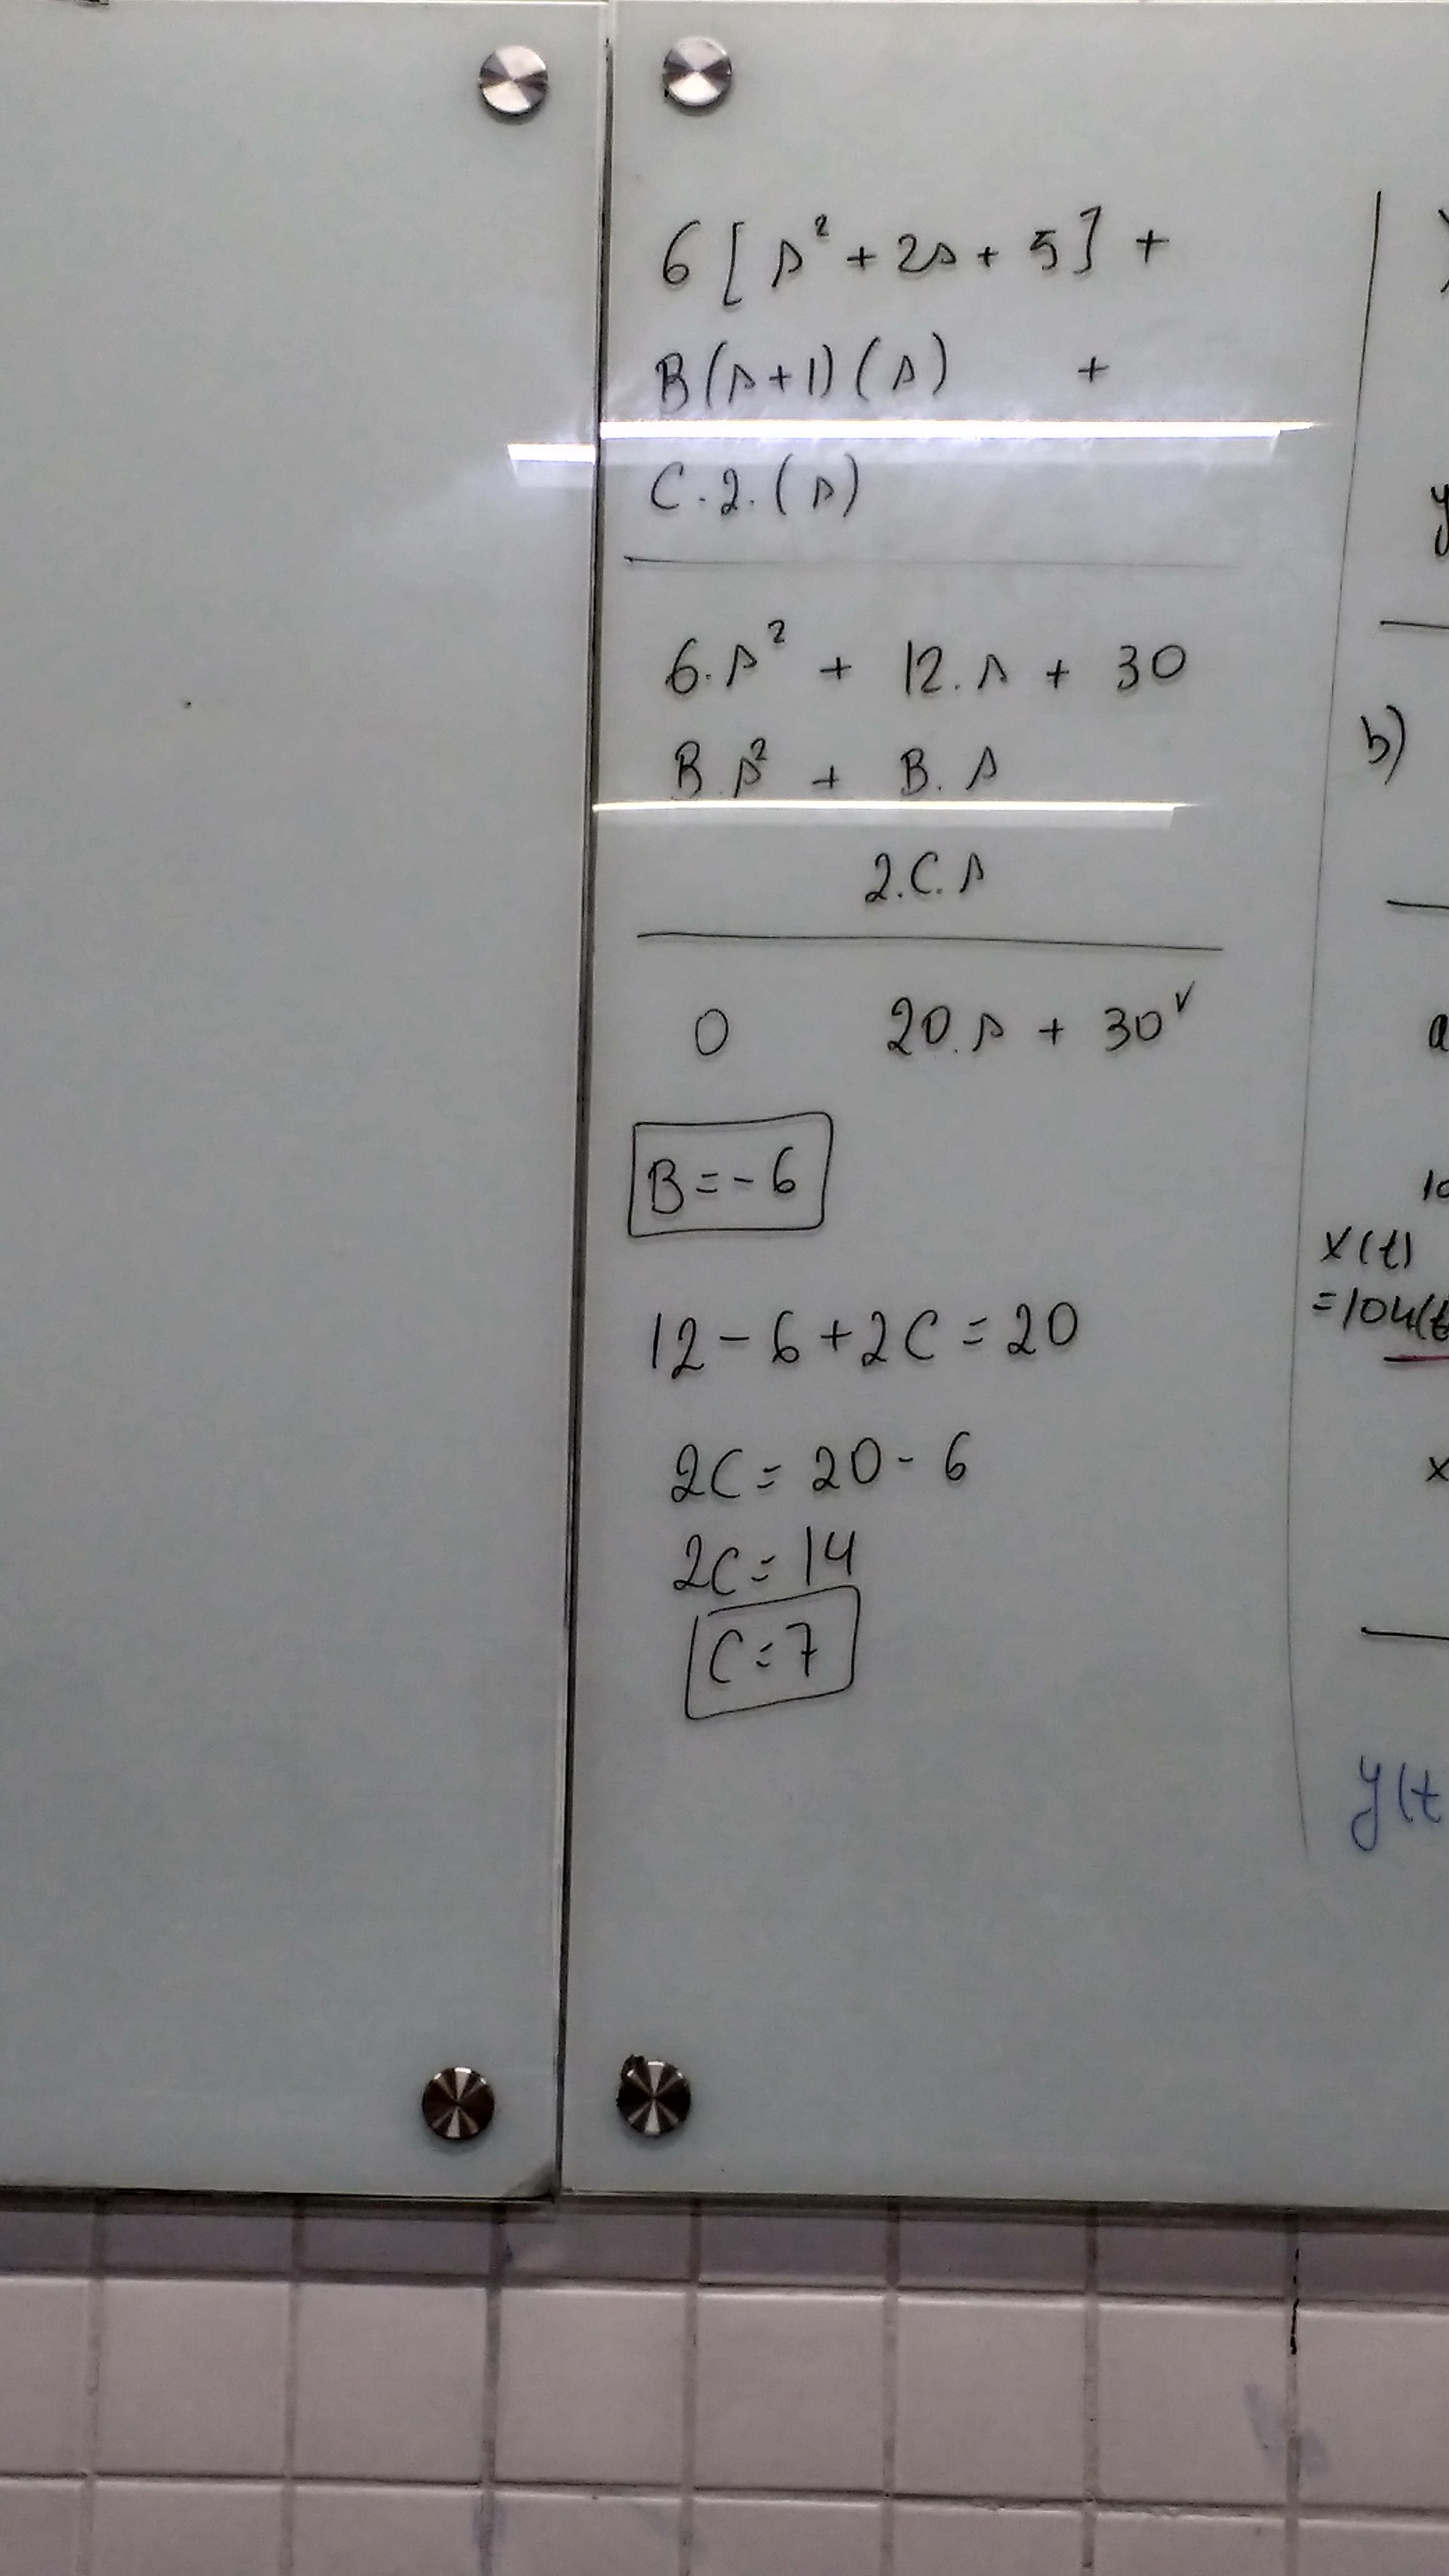 6[s² + 2s + 5] +
B(s+1)(s) +
C.2.(s)
6.s² + 12.s + 30
B.s² + B.s
2.C.s
0 20.s + 30 ✓
B = -6
12 - 6 + 2C = 20
2C = 20 - 6
2C = 14
C = 7
y
b)
a
10
x(t)
=10u(t
x
y(t